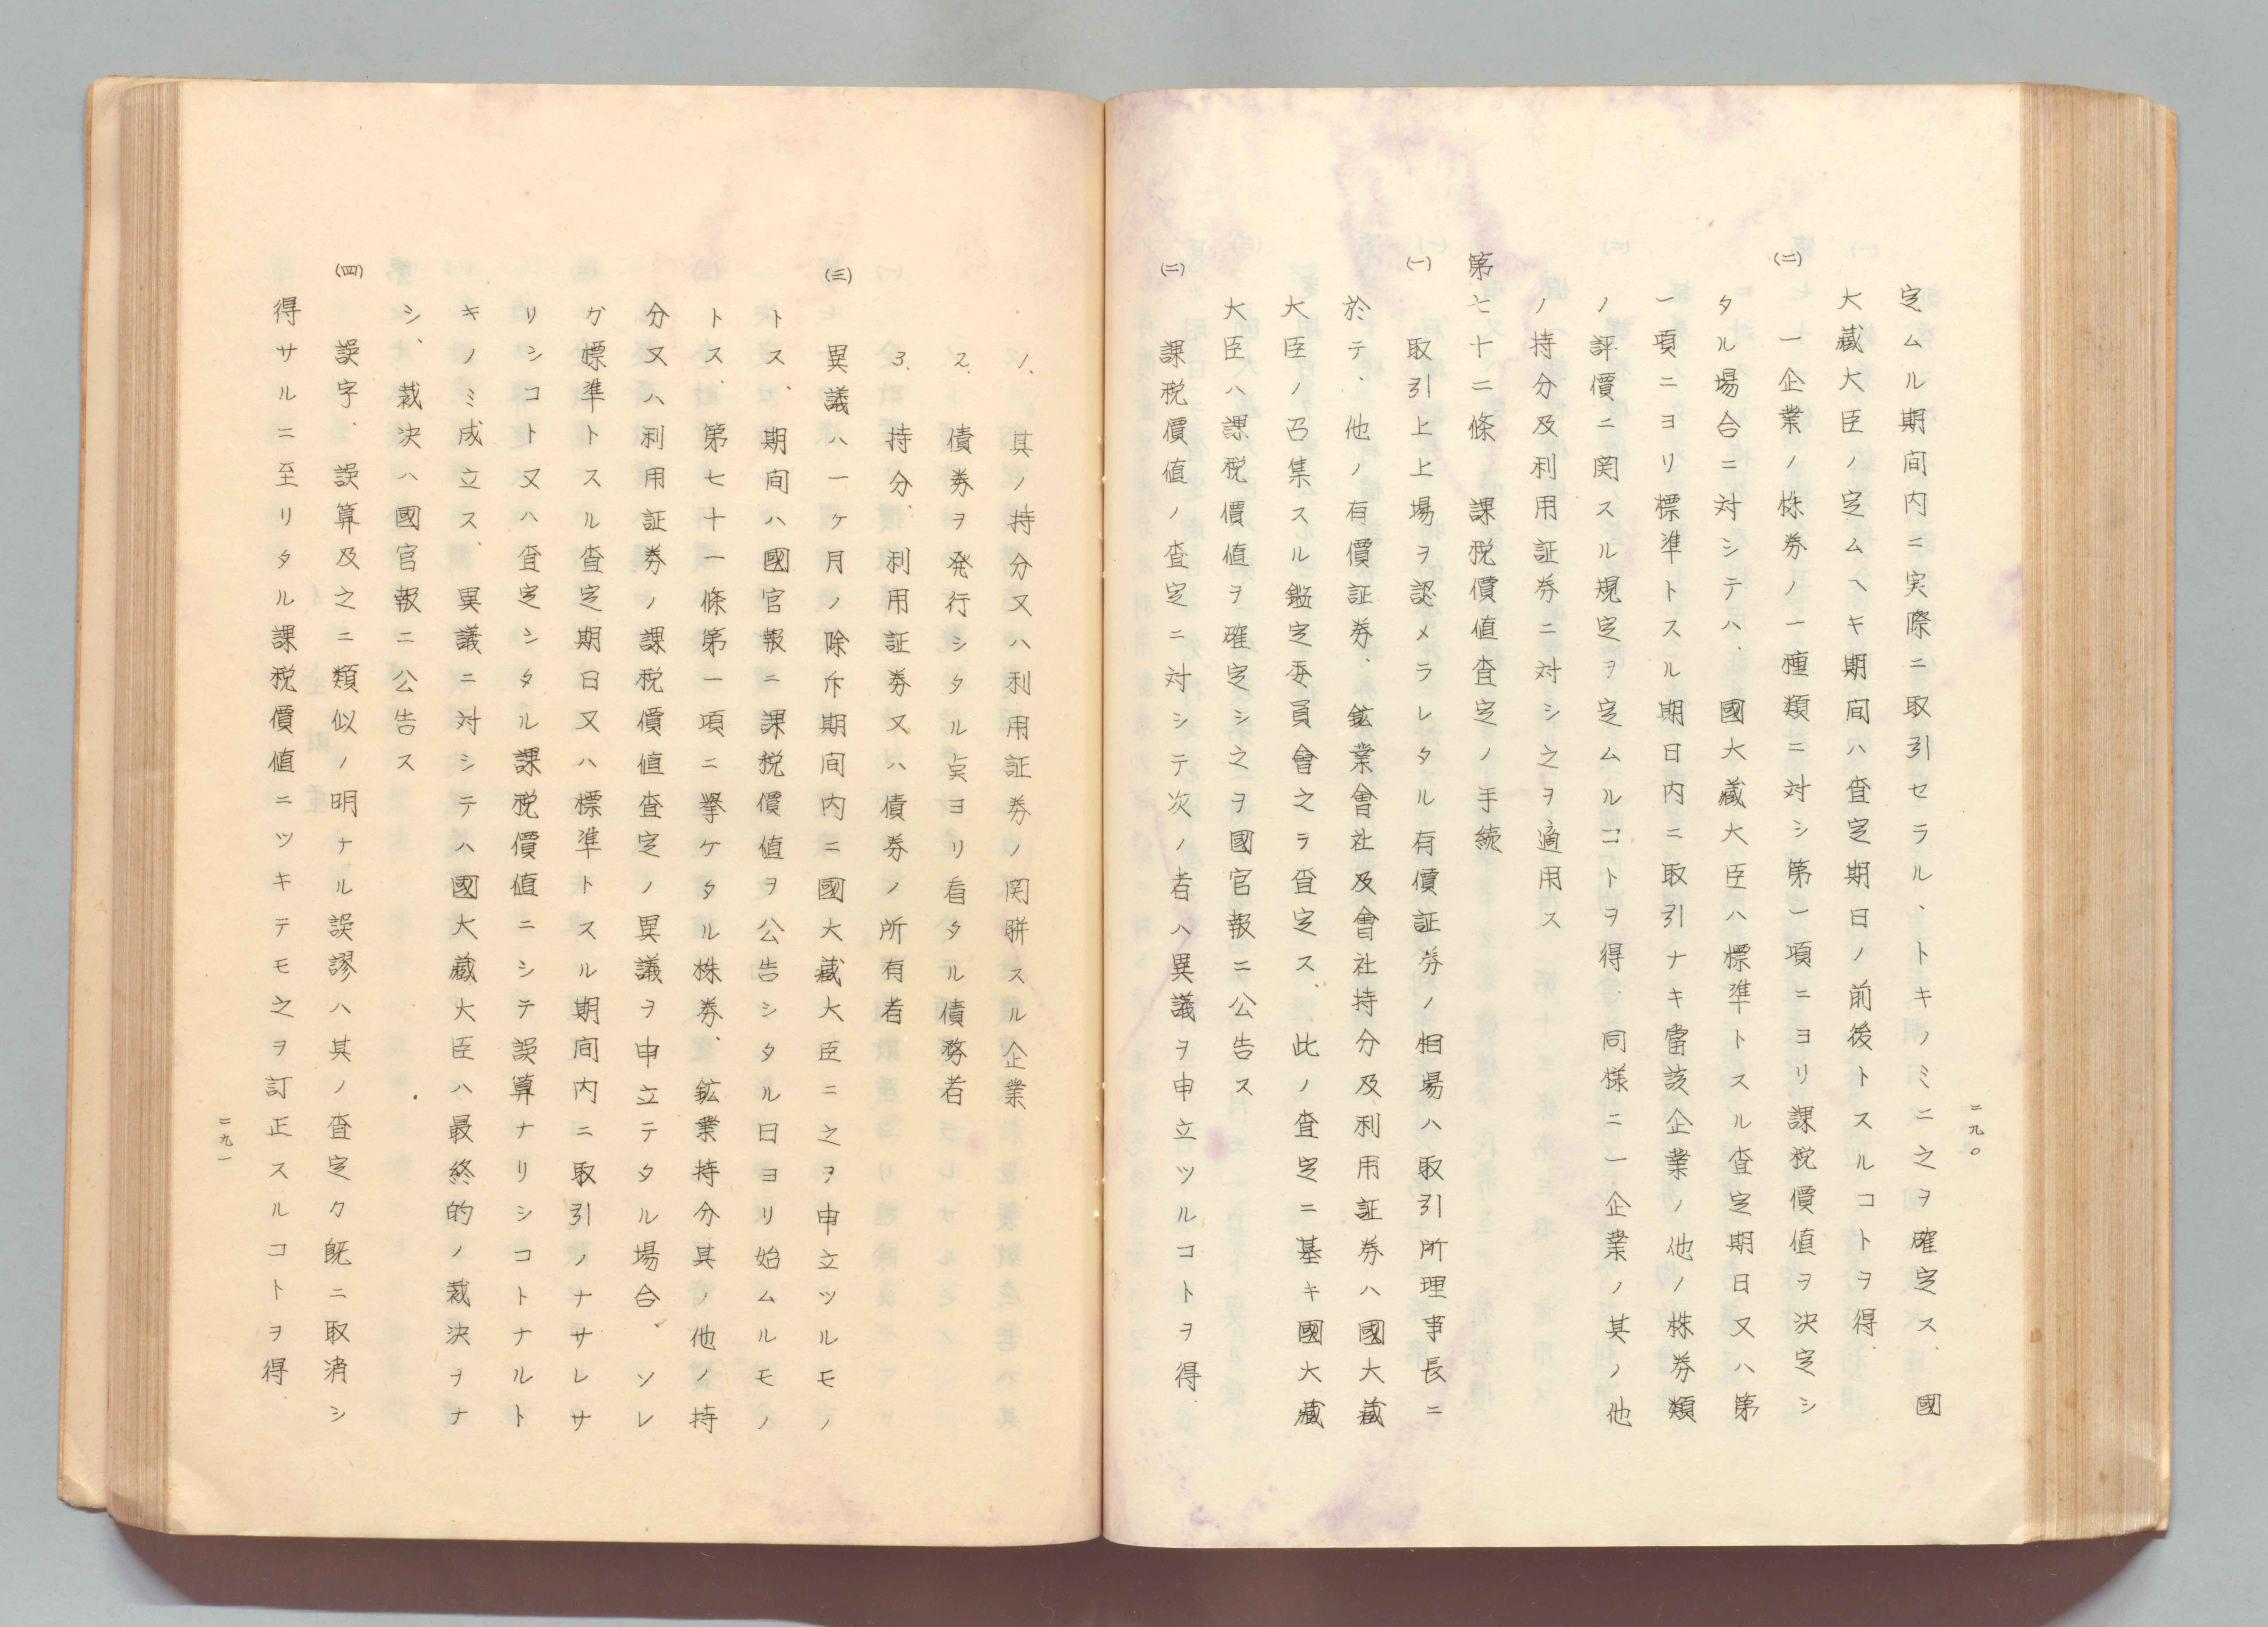 定ムル期間内ニ実際ニ取引セラル、トキノミニ之ヲ確定ス、國
大藏大臣ノ定ムヘキ期間ハ査定期日ノ前後トスルコトヲ得、
(二) 一企業ノ株券ノ一種類ニ対シ第一項ニヨリ課税價値ヲ決定シ
タル場合ニ対シテハ、國大藏大臣ハ標準トスル査定期日又ハ第
一項ニヨリ標準トスル期日内ニ取引ナキ當該企業ノ他ノ株券類
ノ評價ニ関スル規定ヲ定ムルコトヲ得、同様ニ一企業ノ其ノ他
ノ持分及利用証券ニ対シ之ヲ適用ス
第七十二條 課税價値査定ノ手続
(一) 取引上上場ヲ認メラレタル有價証券ノ相場ハ取引所理事長ニ
於テ、他ノ有價証券、鉱業會社及會社持分及利用証券ハ國大藏
大臣ノ召集スル鑑定委員會之ラ査定ス、此ノ査定ニ基キ國大藏
大臣ハ課税價値ヲ確定シ之ヲ國官報ニ公告ス
(二) 課税價値ノ査定ニ対シテ次ノ者ハ異議ヲ申立ツルコトヲ得、
二九〇
1. 其ノ持分又ハ利用証券ノ関聯スル企業
2. 債券ヲ発行シタル点ヨリ看タル債務者
3. 持分、利用証券又ハ債券ノ所有者
(三) 異議ハ一ケ月ノ除斥期間内ニ國大藏大臣ニ之ヲ申立ツルモノ
トス、期間ハ國官報ニ課税價値ヲ公告シタル日ヨリ始ムルモノ
トス、第七十一條第一項ニ擧ケタル株券、鉱業持分其ノ他ノ持
分又ハ利用証券ノ課税價値査定ノ異議ヲ申立テタル場合、ソレ
ガ標準トスル査定期日又ハ標準トスル期間内ニ取引ノナサレサ
リシコト又ハ査定シタル課税價値ニシテ誤算ナリシコトナルト
キノミ成立ス、異議ニ対シテハ國大藏大臣ハ最終的ノ裁決ヲナ
シ、裁決ハ國官報ニ公告ス
(四) 誤字、誤算及之ニ類似ノ明ナル誤謬ハ其ノ査定ク既ニ取消シ
得サルニ至リタル課税價値ニツキテモ之ヲ訂正スルコトヲ得、
二九一